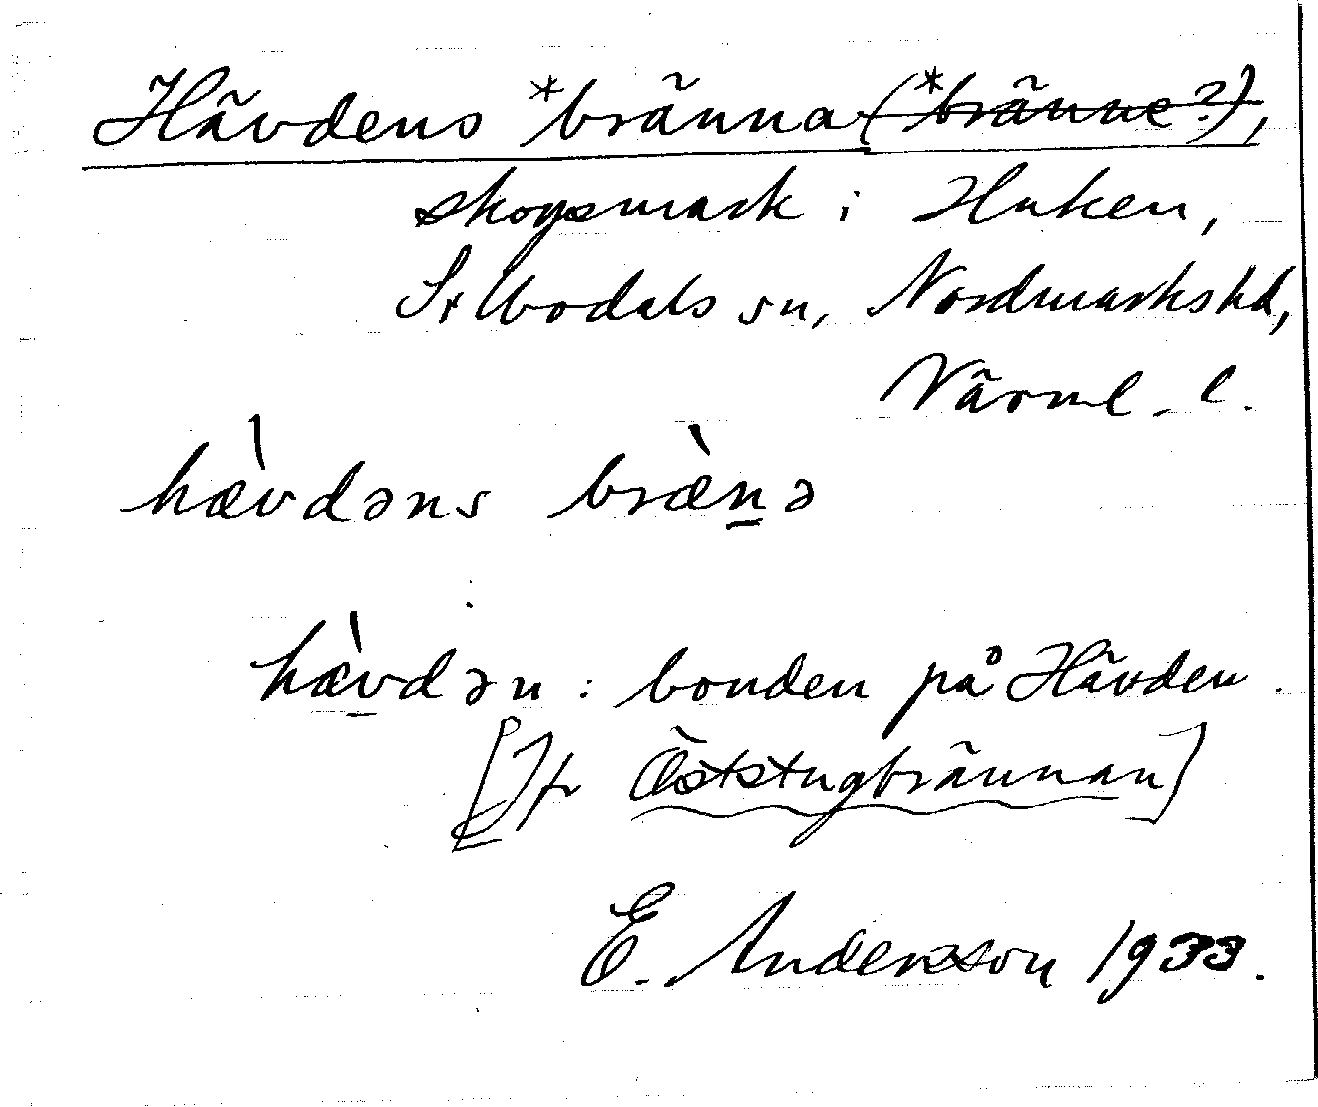 Hävdens *bränna (*bränne?),
skogsmark i Huken,
Sillbodals sn, Nordmarks hd,
Värml. l.
hæ̀vdəns bræ̀n̠ə
hæ̀v̠dən : bonden på Hävden.
[Jfr Öststugbrännan]
E. Anderson 1933.